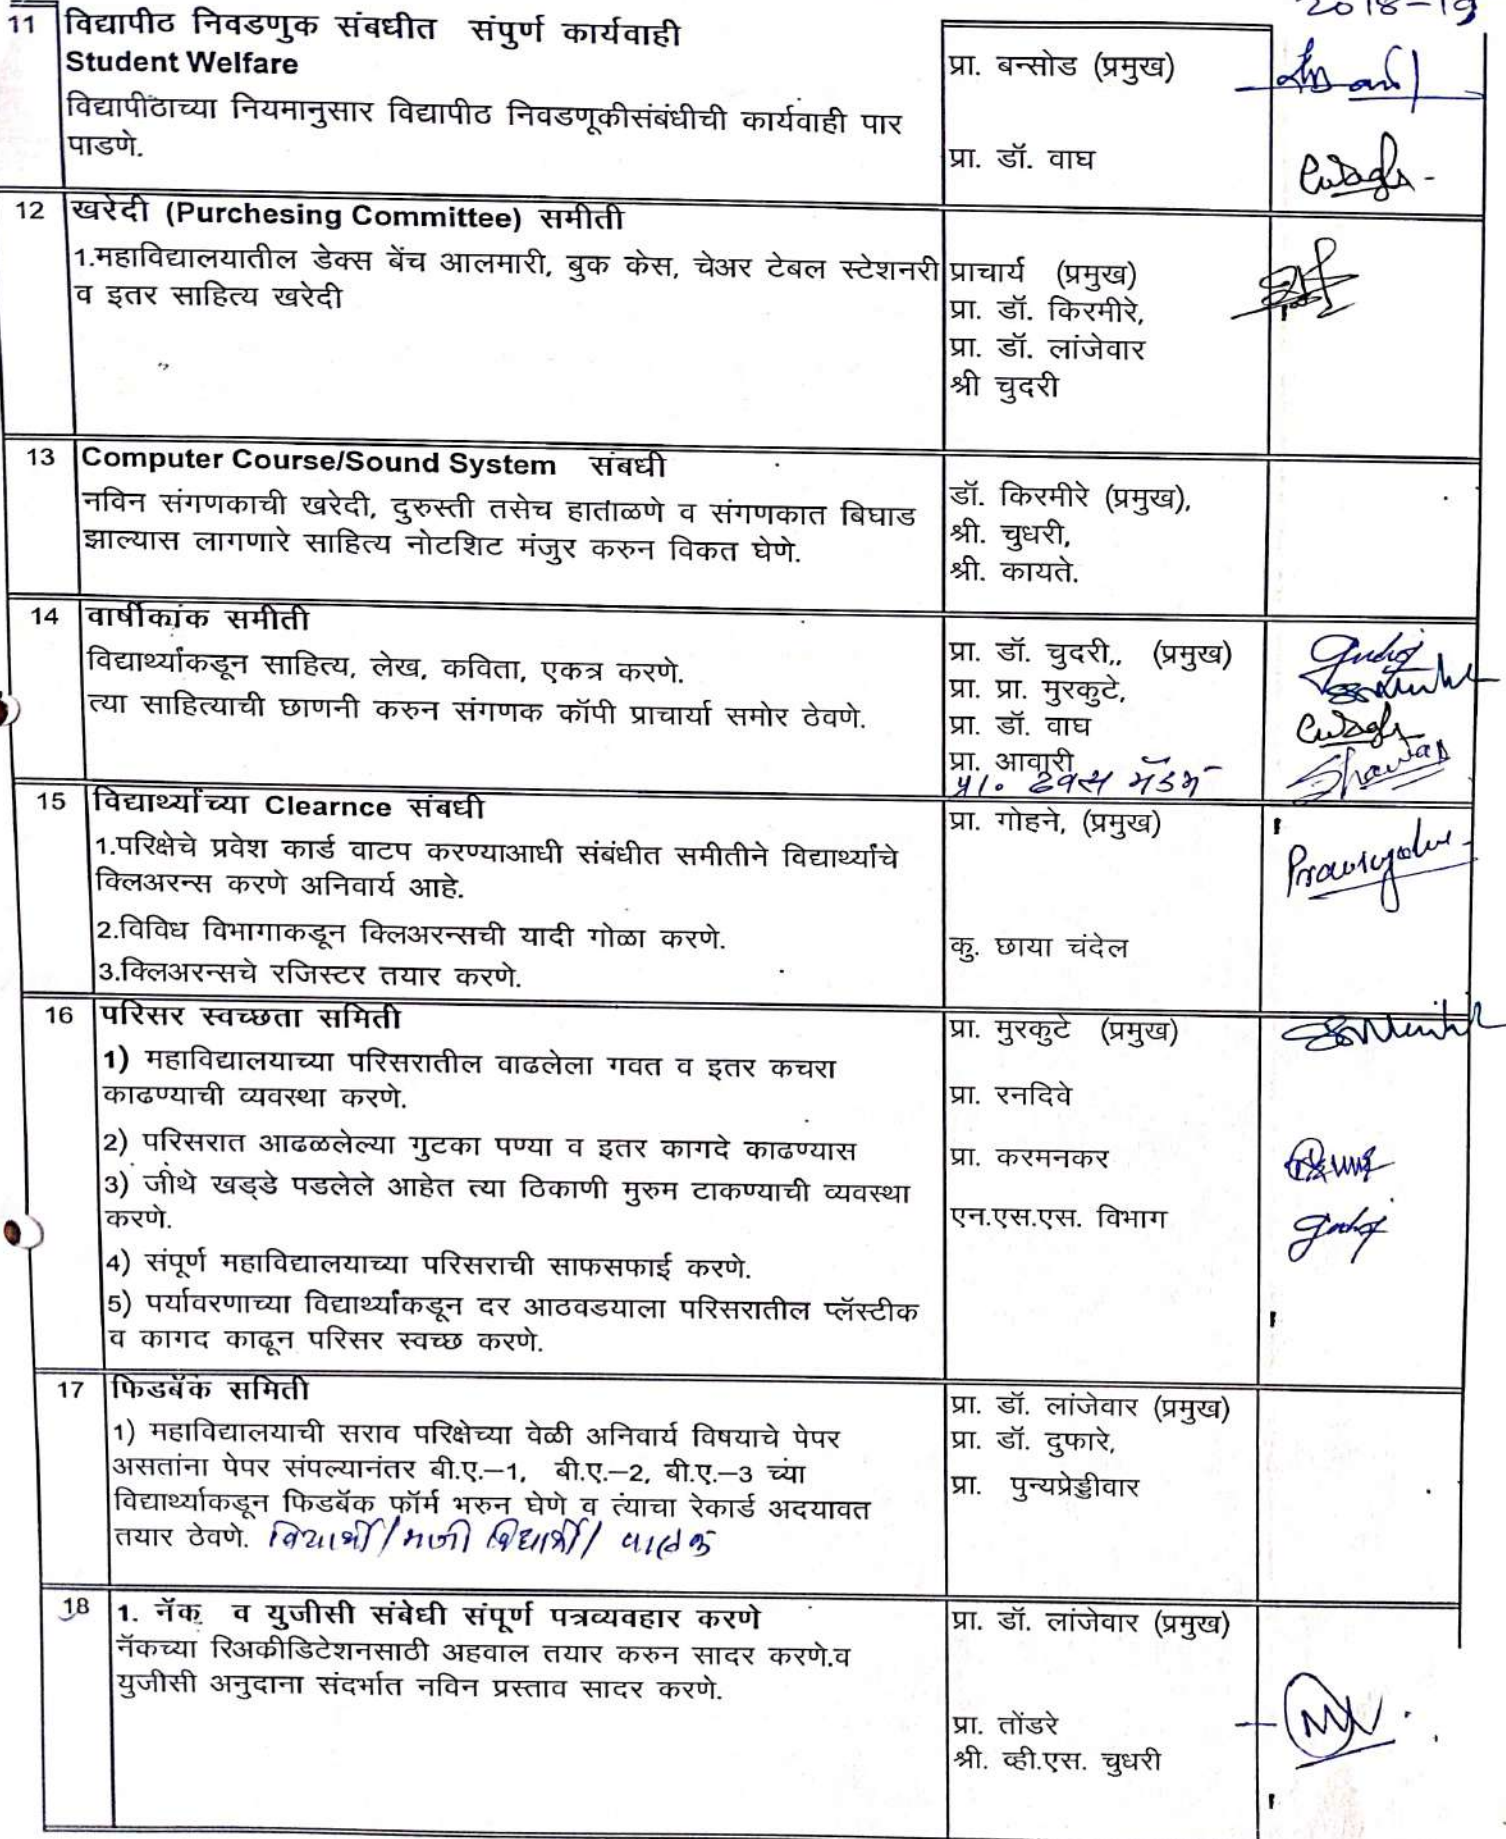 2018-19
11 विद्यापीठ निवडणुक संबधीत संपुर्ण कार्यवाही
Student Welfare
विद्यापीठाच्या नियमानुसार विद्यापीठ निवडणूकीसंबंधीची कार्यवाही पार
पाडणे.
प्रा. बन्सोड (प्रमुख)
प्रा. डॉ. वाघ
12 खरेदी (Purchesing Committee) समीती
1.महाविद्यालयातील डेक्स बेंच आलमारी, बुक केस, चेअर टेबल स्टेशनरी
व इतर साहित्य खरेदी
प्राचार्य (प्रमुख)
प्रा. डॉ. किरमीरे,
प्रा. डॉ. लांजेवार
श्री चुदरी
13 Computer Course/Sound System संबधी
नविन संगणकाची खरेदी, दुरुस्ती तसेच हाताळणे व संगणकात बिघाड
झाल्यास लागणारे साहित्य नोटशिट मंजुर करुन विकत घेणे.
डॉ. किरमीरे (प्रमुख),
श्री. चुधरी,
श्री. कायते.
14 वार्षीकांक समीती
विद्यार्थ्यांकडून साहित्य, लेख, कविता, एकत्र करणे.
त्या साहित्याची छाणनी करुन संगणक कॉपी प्राचार्या समोर ठेवणे.
प्रा. डॉ. चुदरी,, (प्रमुख)
प्रा. प्रा. मुरकुटे,
प्रा. डॉ. वाघ
प्रा. आवारी
प्रा. मॅडम
15 विद्यार्थ्यांच्या Clearnce संबधी
1.परिक्षेचे प्रवेश कार्ड वाटप करण्याआधी संबंधीत समीतीने विद्यार्थ्यांचे
क्लिअरन्स करणे अनिवार्य आहे.
2.विविध विभागाकडून क्लिअरन्सची यादी गोळा करणे.
3.क्लिअरन्सचे रजिस्टर तयार करणे.
प्रा. गोहने, (प्रमुख)
कु. छाया चंदेल
16 परिसर स्वच्छता समिती
1) महाविद्यालयाच्या परिसरातील वाढलेला गवत व इतर कचरा
काढण्याची व्यवस्था करणे.
2) परिसरात आढळलेल्या गुटका पण्या व इतर कागदे काढण्यास
3) जीथे खड्डे पडलेले आहेत त्या ठिकाणी मुरुम टाकण्याची व्यवस्था
करणे.
4) संपूर्ण महाविद्यालयाच्या परिसराची साफसफाई करणे.
5) पर्यावरणाच्या विद्यार्थ्यांकडून दर आठवडयाला परिसरातील प्लॅस्टीक
व कागद काढून परिसर स्वच्छ करणे.
प्रा. मुरकुटे (प्रमुख)
प्रा. रनदिवे
प्रा. करमनकर
एन.एस.एस. विभाग
17 फिडबॅक समिती
1) महाविद्यालयाची सराव परिक्षेच्या वेळी अनिवार्य विषयाचे पेपर
असतांना पेपर संपल्यानंतर बी.ए.–1, बी.ए.–2, बी.ए.–3 च्या
विद्यार्थ्याकडून फिडबॅक फॉर्म भरुन घेणे व त्यांचा रेकार्ड अदयावत
तयार ठेवणे. विद्यार्थी / माजी विद्यार्थी / पालक
प्रा. डॉ. लांजेवार (प्रमुख)
प्रा. डॉ. दुफारे,
प्रा. पुन्यप्रेड्डीवार
18 1. नॅक व युजीसी संबेधी संपूर्ण पत्रव्यवहार करणे
नॅकच्या रिअक्रीडिटेशनसाठी अहवाल तयार करुन सादर करणे.व
युजीसी अनुदाना संदर्भात नविन प्रस्ताव सादर करणे.
प्रा. डॉ. लांजेवार (प्रमुख)
प्रा. तोंडरे
श्री. व्ही.एस. चुधरी